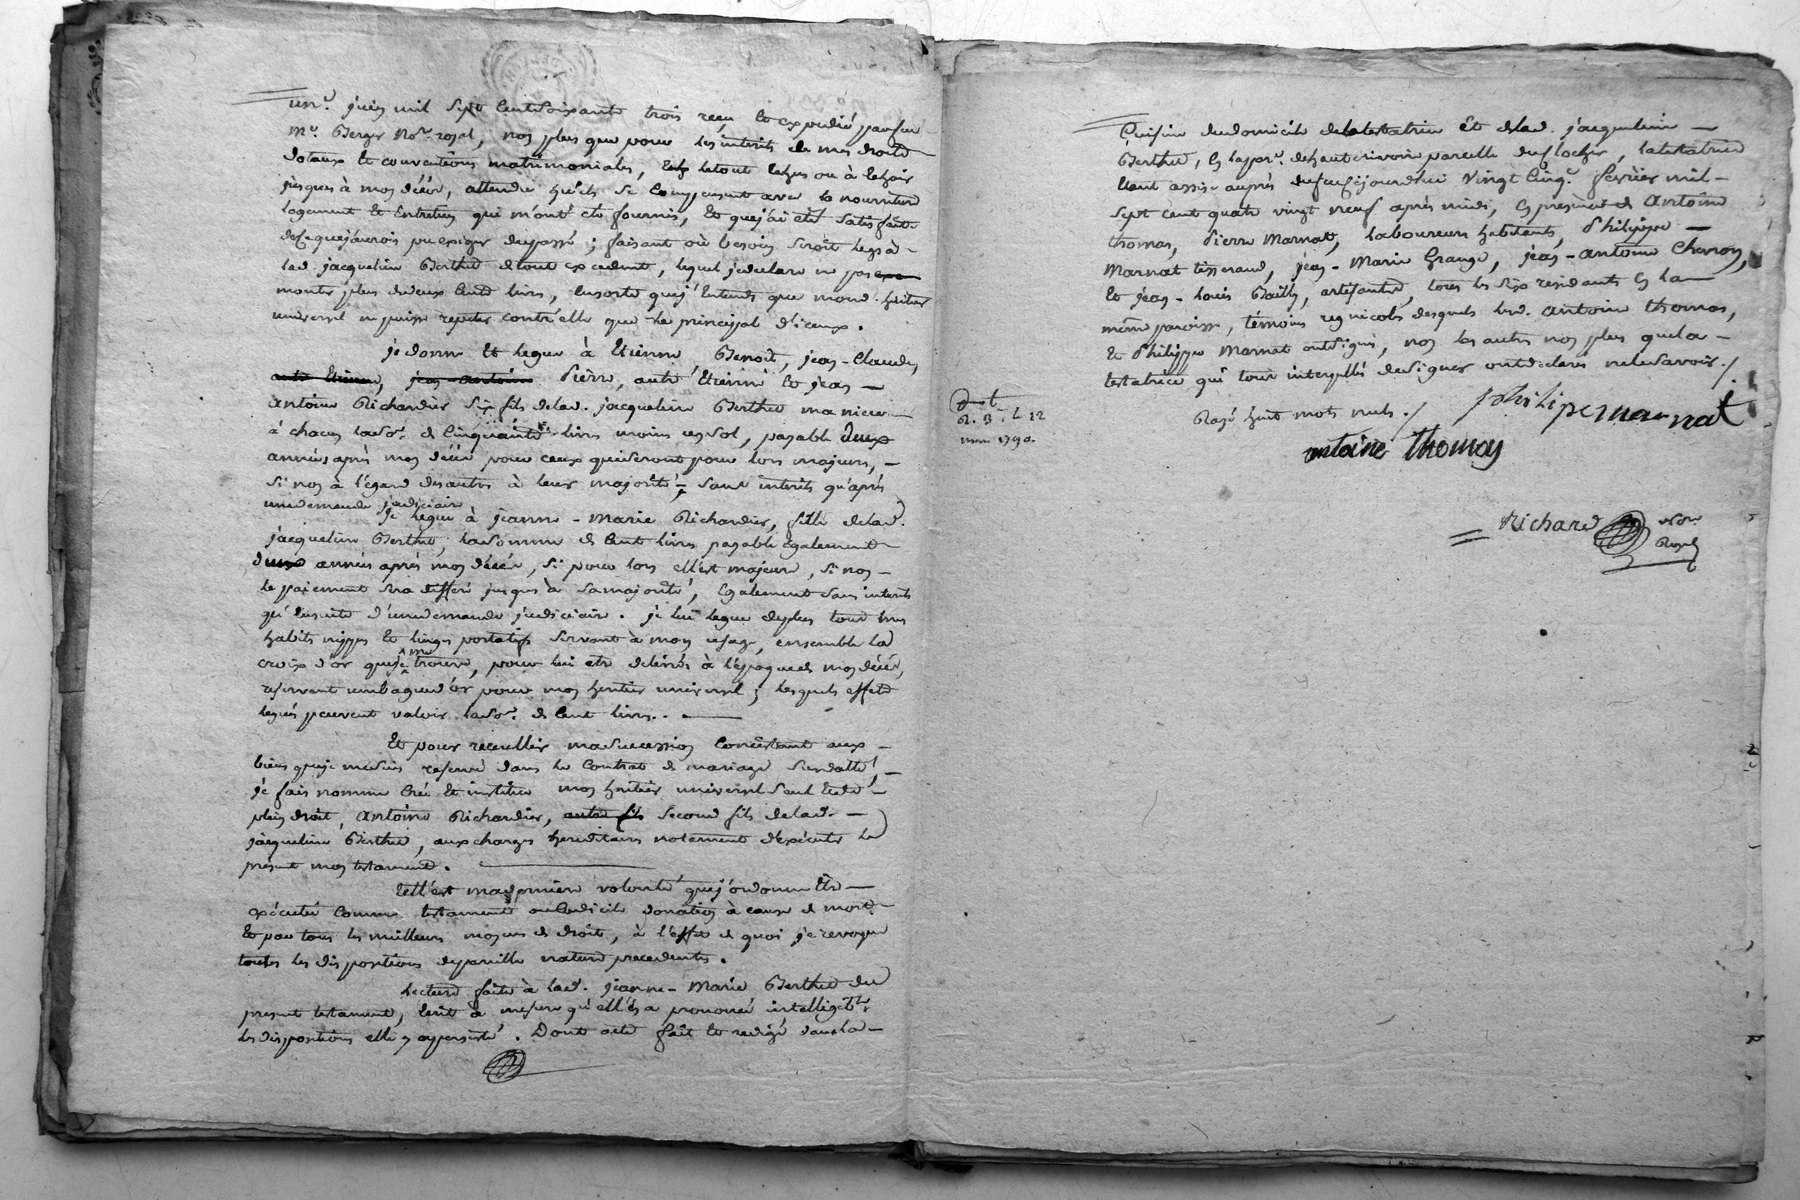 un.e juin mil sept cent soixante trois reçu et expedié par feu
M.e Berger No.re royal, non plus que pour les interits de mes droits
dotaux et conventions matrimoniales, le tout echus ou à echoir
jusques à mon décés, attendu qu'ils se compensent avec la nourriture
logement et entretien qui m'ont eté fournis, et que j'ai eté satisfaite
de ce que j'aurois pu exiger du passé ; faisant où besoin seroit legs à
lad. jacqueline Berthet de tout excedent, lequel je declare ne pas
monter plus de deux cents livres, ensorte que j'entends que mond. heritier
universel ne puisse repeter contr'elle que le principal d'iceux.
je donne et legue à Etienne, Benoit, jean-Claude,
autre Etienne, jean-antoine Pierre, autre Etienne et jean-
antoine Richardier six fils de lad. jacqueline Berthet ma niece
à chacun la so.e de cinquante livres moins un sol, payable deux
années après mon décés pour ceux qui seront pour lors majeurs,
si non à l'égard des autres à leur majorité, sans interits qu'après
une demande judiciaire
je legue à jeanne-Marie Richardier, fille de lad.
jacqueline Berthet, la somme de cent livres payable également
deux années après mon décés, si pour lors elle est majeure, si non
le paiement sera differé jusques à sa majorité, également sans interits
qu'ensuite d'une demande judiciaire. je lui legue de plus tous mes
habits nippes et linges portatifs servant à mon usage, ensemble la
croix d'or que je me trouve, pour lui etre delivrés à l'époque de mon décés,
reservant une bague d'or pour mon heritier universel ; lesquels effets
legués peuvent valoir la so.e de cent livres.
Et pour recueillir ma succession consistant aux
biens que je me suis reservé dans le contrat de mariage susdatté,
je fais nomme créé et institue mon heritier universel seul et de
plein droit, antoine Richardier, autre fils second fils de lad.
jacqueline Berthet, aux charges hereditaires notamment d'exécuter le
présent mon testament.
Tell'est ma derniere volonté que j'ordonne être
exécutée comme testament ou codicile donation à cause de mort
et par tous les meilleurs moyens de droit, à l'effet de quoi je revoque
toutes les dispositions de pareille nature precedentes.
Lecture faite à lad. jeanne-Marie Berthet du
present testament, écrit à mesure qu'elle en a prononcé intelligiblt
les dispositions elle y a persisté. Dont acte fait et redigé dans la
Cuisine du domicile de la testatrice et de lad. jacqueline
Berthet, en la par.e de haut rivoire parcelle du clocher, la testatrice
étant assise auprès du feu cejourd'hui vingt cinq.e fevrier mil
sept cent quatre vingt neuf après midi, en presence de antoine
thomas, Pierre Marnat, laboureurs habitants, Philippe
Marnat tisserand, jean-Marie Grange, jean-antoine Charroy,
et jean-Louis Bailly, artisants, tous les six residants en la
même paroisse, témoins regnicols desquels led. antoine thomas,
et Philippe Marnat ont signé, non les autres non plus que la
testatrice qui tous interpellés de signer ont declaré ne le savoir./.
Rayé huit mots nuls./
philipe marnat
antoine thomas
R. B. L 12
mars 1790.
Richard No.re
Royal